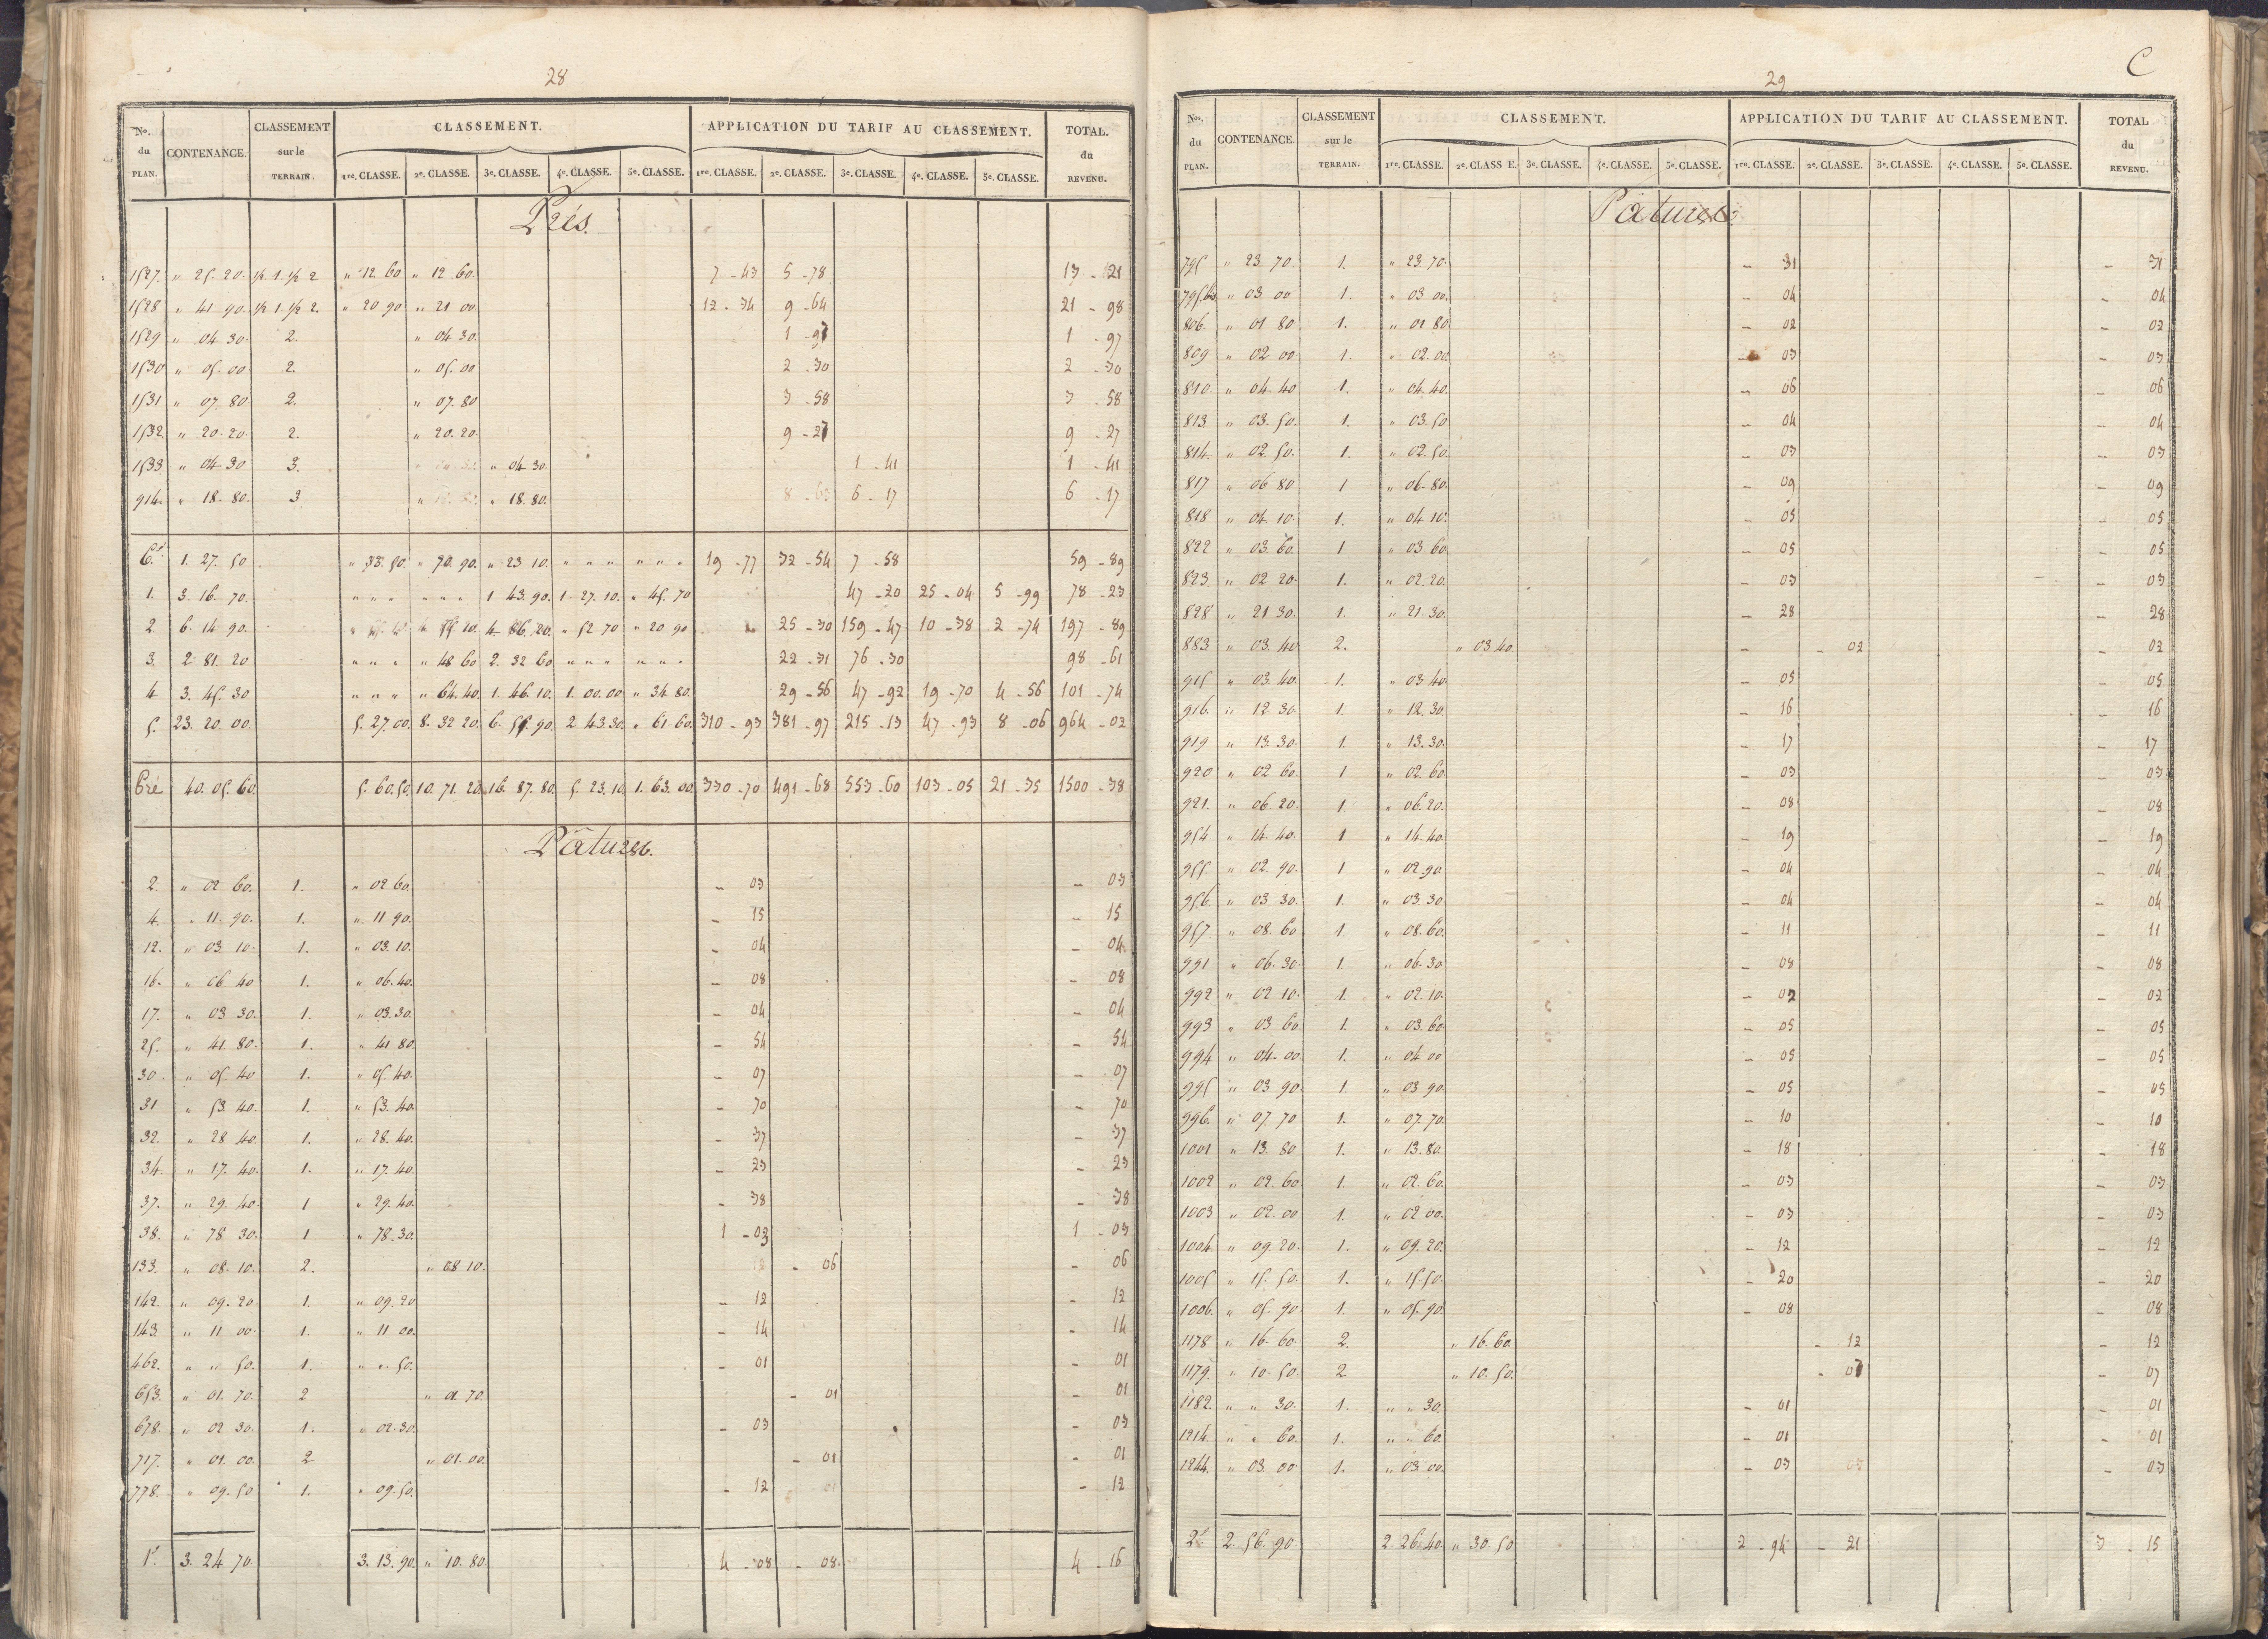 28
No. du PLAN. CONTENANCE. CLASSEMENT sur le TERRAIN CLASSEMENT. APPLICATION DU TARIF AU CLASSEMENT. TOTAL. du REVENU.
1re. CLASSE. 2e. CLASSE. 3e. CLASSE. 4e. CLASSE. 5e. CLASSE. 1re. CLASSE. 2e. CLASSE. 3e. CLASSE. 4e. CLASSE. 5e. CLASSE.
Prés.
1527. " 25. 20. ½ 1. ½ 2 " 12. 60 " 12 60. 7 - 43 5 - 78 13 - 21
1528 " 41 90. ½ 1. ½ 2. " 20 90 " 21 00 12 - 34 9 - 64 21 - 98
1529 " 04 30. 2. " 04 30. 1 - 97 1 - 97
1530 " 05. 00 2. " 05. 00 2 - 30 2 - 30
1531 " 07. 80 2. " 07. 80 3 - 58 3 - 58
1532 " 20. 20. 2. " 20. 20. 9 - 27 9 - 27
1533 " 04 30 3. " 04 30. 1 - 41 1 - 41
914. " 18. 80. 3 " 18. 80. 6 - 17 6 - 17
6e. 1. 27. 50 " 33. 50. " 70. 90. " 23 10. " " " " " " 19 - 77 32 - 54 7 - 58 59 - 89
1. 3. 16. 70. " " " " " " 1 43. 90. 1. 27. 10. " 45. 70 47 - 20 25 - 04 5 - 99 78 - 23
2. 6. 14 90. 55. 10. 4. 86. 20. " 52 70 " 20 90 25 - 30 159 - 47 10 - 38 2 - 74 197 - 89
3. 2 81. 20 " " " " 48 60 2. 32 60 " " " " " " 22 - 31 76 - 30 98 - 61
4 3. 45. 30 " " " " 64. 40. 1. 46. 10. 1. 00. 00 " 34. 80. 29 - 56 47 - 92 19 - 70 4 - 56 101 - 74
5. 23. 20. 00. 5. 27. 00. 8. 32 20. 6. 55. 90. 2 43. 30. " 61. 60. 310 - 93 381 - 97 215 - 13 47 - 93 8 - 06 964 - 02
Pré 40. 05. 60. 5. 60. 50. 10. 71. 20. 16. 87. 80. 5. 23. 10 1. 63. 00. 330 - 70 491 - 68 553 - 60 103 - 05 21 - 35 1500 - 38
Pâtures.
2. " 02 60. 1. " 02 60. - 03 - 03
4. " 11. 90. 1. " 11 90. - 15 - 15
12. " 03 10. 1. " 03. 10. - 04 - 04.
16. " 06 40 1. " 06. 40. - 08 - 08
17. " 03 30. 1. " 03. 30. - 04 - 04
25. " 41. 80. 1. " 41 80. - 54 - 54
30 " 05. 40 1. " 05. 40. - 07 - 07
31 " 53. 40. 1. " 53. 40. - 70 - 70
32. " 28 40. 1. " 28. 40. - 37 - 37
34. " 17. 40. 1. " 17. 40. - 23 - 23
37. " 29. 40. 1 " 29. 40. - 38 - 38
38. " 78 30. 1 " 78. 30. 1 - 03 1 - 03
133. " 08. 10. 2. " 08 10. - 06 - 06
142. " 09. 20 1. " 09. 20 - 12 - 12
143. " 11 00. 1. " 11 00. - 14 - 14
462. " " 50. 1. " " 50. - 01 - 01
653. " 01. 70. 2 " 01. 70. - 01 - 01
678. " 02 30. 1. " 02. 30. - 03 - 03
717. " 01. 00. 2 " 01. 00. - 01 - 01
778. " 09. 50 1. " 09. 50. - 12 - 12
1e. 3. 24. 70. 3. 13. 90. " 10. 80. 4 - 08 - 08. 4 - 16
C
29
Nos. du PLAN. CONTENANCE. CLASSEMENT sur le TERRAIN. CLASSEMENT. APPLICATION DU TARIF AU CLASSEMENT. TOTAL du REVENU.
1re. CLASSE. 2e. CLASS E. 3e. CLASSE. 4e. CLASSE. 5e. CLASSE. 1re. CLASSE. 2e. CLASSE. 3e. CLASSE. 4e. CLASSE. 5e. CLASSE.
Pâtures.
795 " 23 70. 1. " 23 70. - 31 - 31
795.bis " 03 00 1. " 03. 00. - 04 - 04
806. " 01 80. 1. " 01 80. - 02 - 02
809 " 02 00. 1. " 02. 00. - 03 - 03
810. " 04. 40 1. " 04. 40. - 06 - 06
813 " 03. 50. 1. " 03. 50 - 04 - 04
814. " 02. 50. 1. " 02. 50. - 03 - 03
817 " 06 80 1 " 06. 80. - 09 - 09
818 " 04. 10. 1. " 04 10. - 05 - 05
822 " 03. 60. 1 " 03 60. - 05 - 05
823. " 02 20. 1. " 02. 20. - 03 - 03
828 " 21 30. 1. " 21. 30. - 28 - 28
883 " 03. 40. 2. " 03 40. - - 02 - 02
915 " 03. 40. 1. " 03 40. - 05 - 05
916. " 12 30. 1. " 12. 30. - 16 - 16
919 " 13. 30. 1. " 13. 30. - 17 - 17
920 " 02 60. 1 " 02. 60. - 03 - 03
921. " 06. 20. 1 " 06. 20. - 08 - 08
954. " 14. 40. 1 " 14. 40. - 19 - 19
955. " 02. 90. 1 " 02. 90. - 04 - 04
956. " 03 30. 1. " 03. 30. - 04 - 04
957. " 08. 60 1. " 08. 60. - 11 - 11
991 " 06. 30. 1. " 06. 30 - 08 - 08
992 " 02 10. 1. " 02. 10. - 02 - 02
993 " 03. 60. 1. " 03. 60. - 05 - 05
994 " 04 00. 1. " 04. 00 - 05 - 05
995 " 03 90. 1. " 03 90. - 05 - 05
996. " 07 70 1. " 07. 70. - 10 - 10
1001 " 13. 80 1. " 13. 80. - 18 - 18
1002 " 02. 60 1. " 02. 60. - 03 - 03
1003 " 02. 00 1. " 02 00. - 03 - 03
1004 " 09. 20. 1. " 09. 20. - 12 - 12
1005 " 15. 50. 1. " 15. 50. - 20 - 20
1006. " 05. 90. 1. " 05. 90 - 08 - 08
1178 " 16. 60. 2. " 16. 60. - 12 - 12
1179. " 10. 50. 2 " 10. 50. - 07 - 07
1182. " " 30. 1. " " 30. - 01 - 01
1214. " " 60. 1. " " 60. - 01 - 01
1244. " 03. 00. 1. " 03. 00. - 03 - 03
2e. 2. 56. 90. 2. 26. 40. " 30. 50 2 - 94 - 21 3 - 15